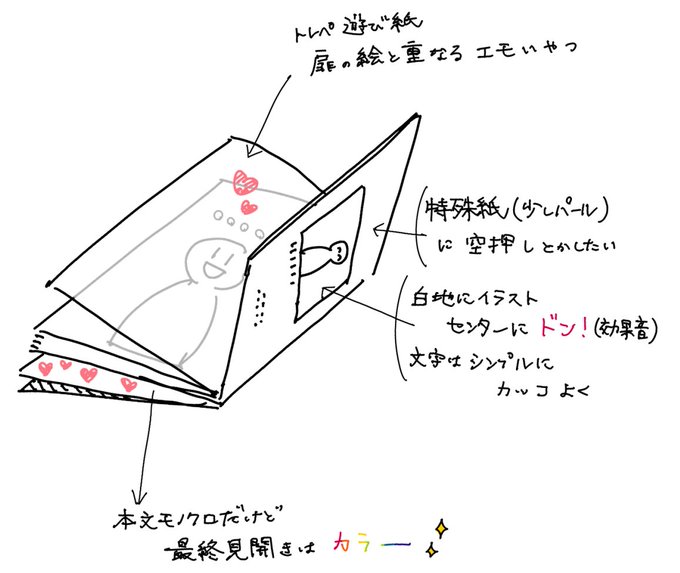 トレペ 遊び紙
扉の絵と重なる エモいやつ
特殊紙(少しパール)
に 空押しとかしたい
白地にイラスト
センターに ドン!(効果音)
文字は シンプルに
カッコよく
本文モノクロだけど
最終見開きは カラー